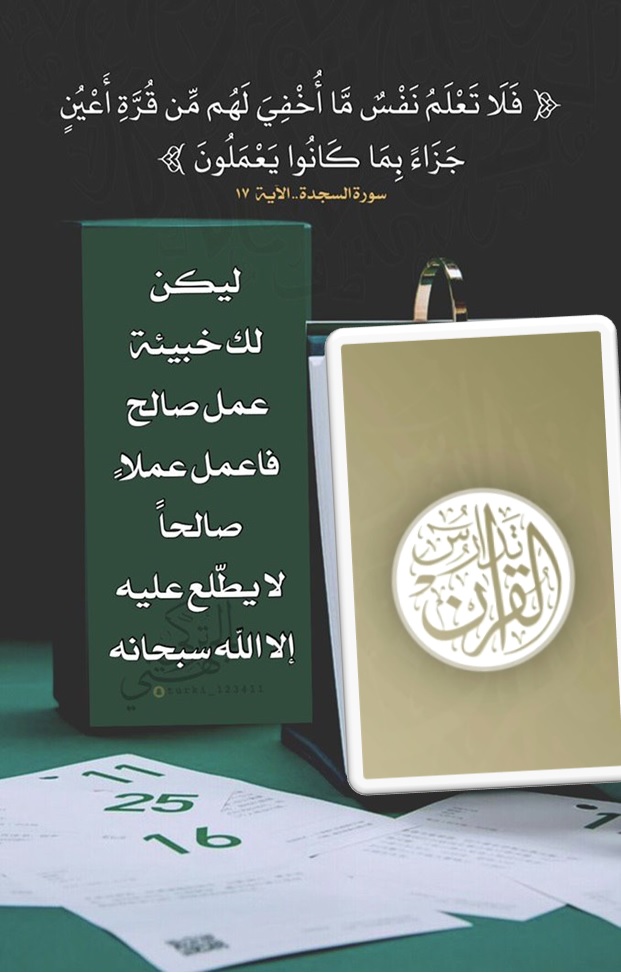 ﴿ فَلَا تَعْلَمُ نَفْسٌ مَّا أُخْفِيَ لَهُم مِّن قُرَّةِ أَعْيُنٍ
جَزَاءً بِمَا كَانُوا يَعْمَلُونَ ﴾
سورة السجدة..الآية ١٧
ليكن
لك خبيئة
عمل صالح
فاعمل عملاً
صالحاً
لا يطّلع عليه
إلا الله سبحانه
turki_123411
تدارس
القرآن
11
25
16